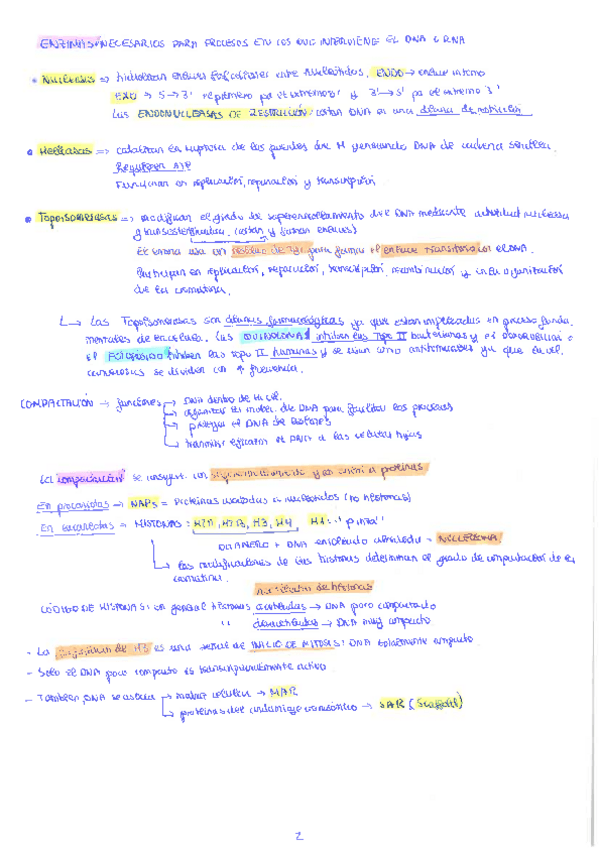 ENZIMAS NECESARIOS PARA PROCESOS EN LOS QUE INTERVIENE EL DNA O RNA
• Nucleasas => hidrolizan enlaces fosfodiéster entre nucleótidos. ENDO → enlace interno
EXO → 5'→3' pa el extremo 5' y 3'→5' pa el extremo 3'
Las ENDONUCLEASAS DE RESTRICCIÓN: cortan DNA en una diana de restricción
• Helicasas => catalizan la ruptura de los puentes de H generando DNA de cadena sencilla.
Requieren ATP
Funcionan en replicación, reparación y transcripción
• Topoisomerasas => modifican el grado de superenrollamiento del DNA mediante actividad nucleasa
y (cortan y forman enlaces)
El enzima usa un residuo de Tyr para formar el enlace transitorio con el DNA.
Participan en replicación, reparación, transcripción, recombinación y en la organización
de la cromatina.
↳ Las Topoisomerasas son dianas farmacológicas ya que están implicadas en procesos funda-
mentales de Las QUINOLONAS inhiben las Topo II bacterianas y el
el inhiben las topo II humanas y se usan como antitumorales ya que en cél.
cancerosas se dividen con ↑ frecuencia.
COMPACTACIÓN → funciones → DNA dentro de la cél.
→ organizar las moléc. de DNA para facilitar los procesos
→ proteger el DNA de
→ transmitir el DNA a las células hijas
La compactación se consigue con y en unión a proteínas
En procariotas → NAPs = Proteínas asociadas a nucleótidos (no histonas)
En eucariotas → HISTONAS: H2A, H2B, H3, H4 H1: "pinza"
OCTÁMERO + DNA enrollado alrededor = NUCLEOSOMA
↳ Las modificaciones de las histonas determinan el grado de compactación de la
cromatina.
de histonas
CÓDIGO DE HISTONAS: en general histonas acetiladas → DNA poco compactado
" desacetiladas → DNA muy compacto
- La fosforilación de H3 es una señal de INICIO DE MITOSIS: DNA totalmente compacto
- Solo el DNA poco compacto es transcripcionalmente activo
- También, DNA se asocia → matriz celular → MAR
↳ proteínas del andamiaje cromosómico → SAR (Scaffold)
2